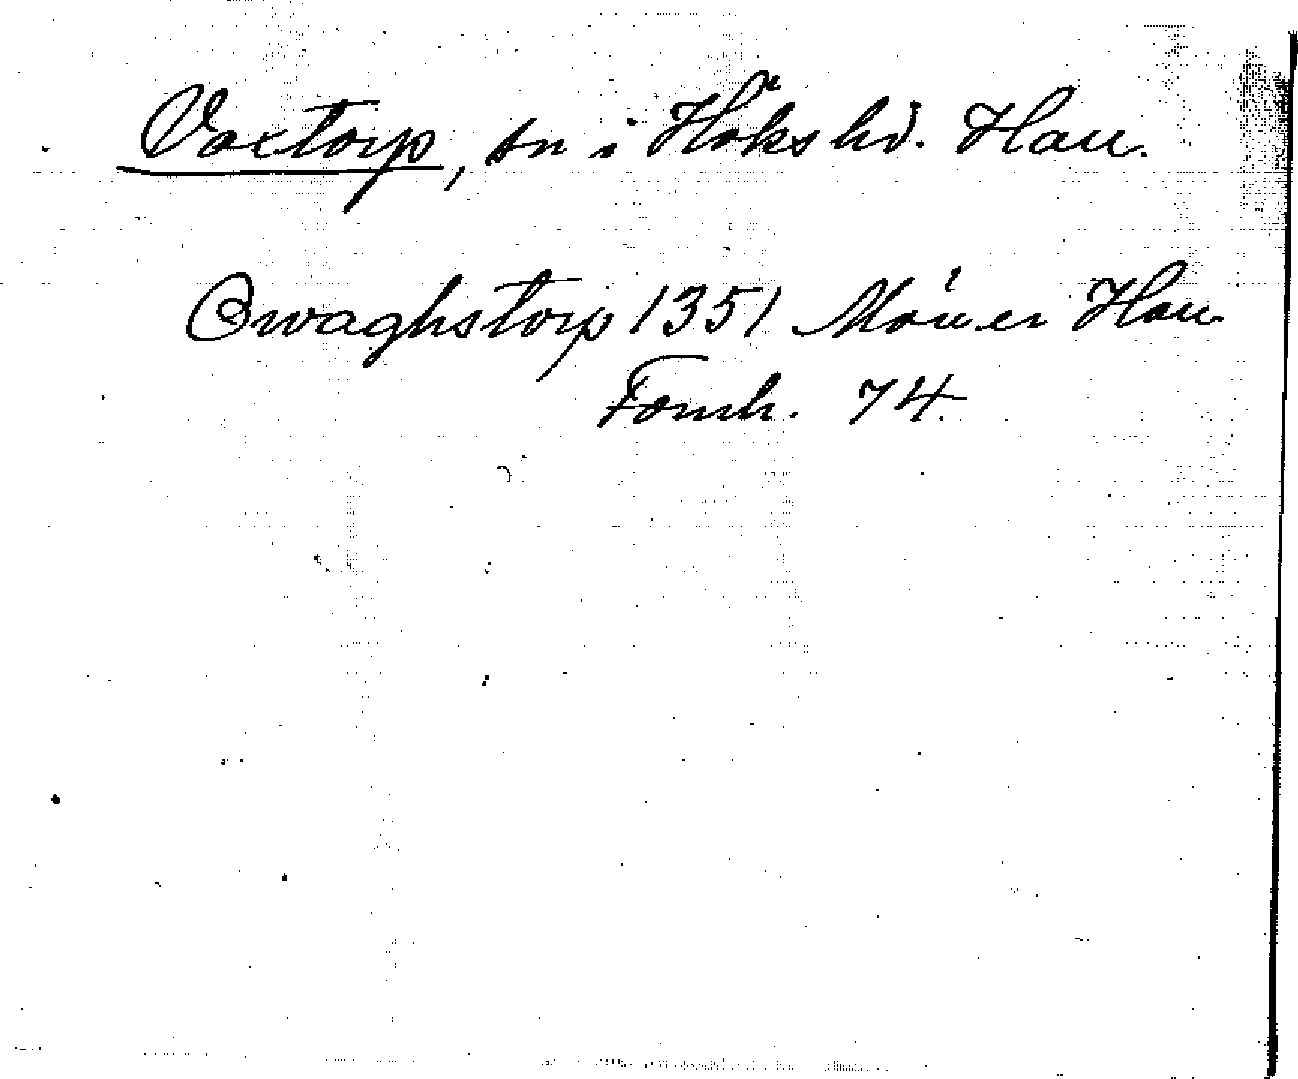 Voxtorp, sn i Höks hd. Hall.
Owaghstorp 1351 Hall
Fornh. 74.